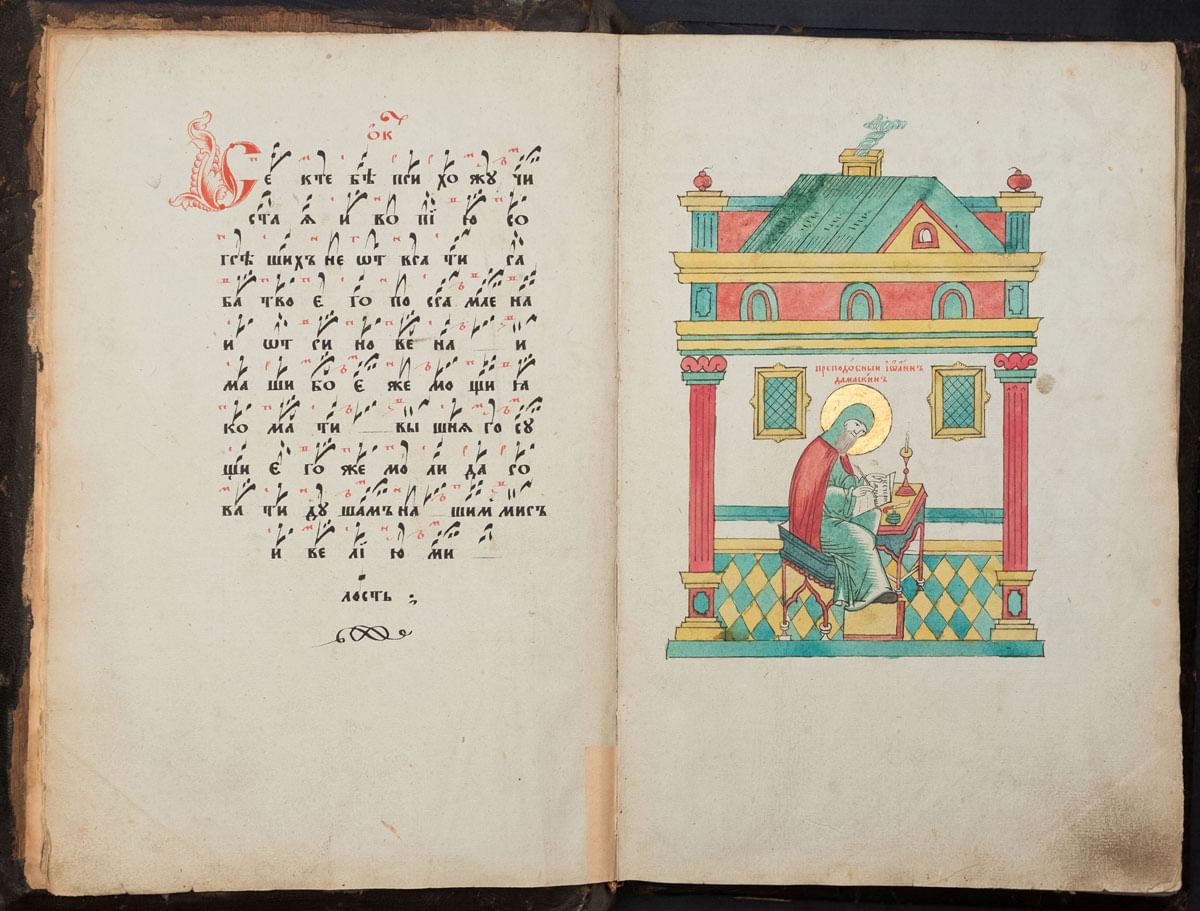 ѻк
Се кте бѣ при хо жу чи
ста ѧ и во пі ю со
грѣ шихъ не ѿт вра ти ра
ба тво є го по сра мле на
и ѿт ри но ве на и
ма ши бо є же мо щи ꙗ
ко ма ти вы шнѧ го су
щи є го же мо ли да ро
ва ти ду шамъ на шим миръ
и ве лі ю ми
лость ;
преподо́бныи іѡа́ннъ
дамаски́нъ